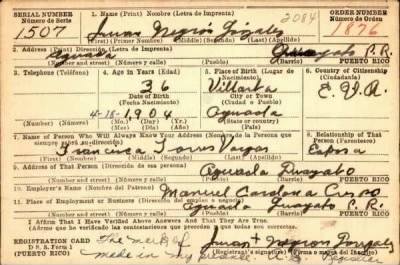 SERIAL NUMBER
Número de Serie
1507
1. Name (Print) Nombre (Letra de Imprenta)
2084
ORDER NUMBER
Número de Orden
1876
Juan Negron Gonzalez
(First) (Primer Nombre) (Middle) (Segundo) (Last) (Apellido)
2. Address (Print) Dirección (Letra de Imprenta)
Aguada Guayabo P.R.
(Number and street) (Número y calle) (Town) (Pueblo) (Barrio) PUERTO RICO
3. Telephone (Teléfono)
4. Age in Years (Edad)
36
Date of Birth
(Fecha Nacimiento)
4-18-1904
(Mo.) (Day) (Yr.)
(Mes) (Día) (Año)
5. Place of Birth (Lugar de Nacimiento)
City or Town
(Ciudad o Pueblo)
Aguada
(State or country)
6. Country of Citizenship
(Ciudadanía)
(Exchange) (Number)
(Número)
7. Name of Person Who Will Always Know Your Address (Nombre de la Persona que siempre sabrá su dirección)
Francisca Torres Vargas
(First) (Primer Nombre) (Middle) (Segundo) (Last) (Apellido)
8. Relationship of That Person
(Parentesco)
Esposa
9. Address of That Person (Dirección de esa persona)
Aguada Guayabo
(Number and street) (Número y calle) (Town) (Pueblo) (Barrio) PUERTO RICO
10. Employer's Name (Nombre del Patrono)
Manuel Cardona Crespo
11. Place of Employment or Business (Dirección del empleo o negocio)
Aguada Guayabo P.R.
(Number and street) (Número y calle) (Town) (Pueblo) (Barrio) PUERTO RICO
I Affirm That I Have Verified Above Answers and That They Are True.
(Afirmo que he verificado las contestaciones que anteceden y que son ciertas)
REGISTRATION CARD
D. S. S. Form 1
(Puerto Rico)
The mark of
made in my
Juan + Negron Gonzalez
(Registrant's Signature or Mark) (Firma o marca del Inscrito)